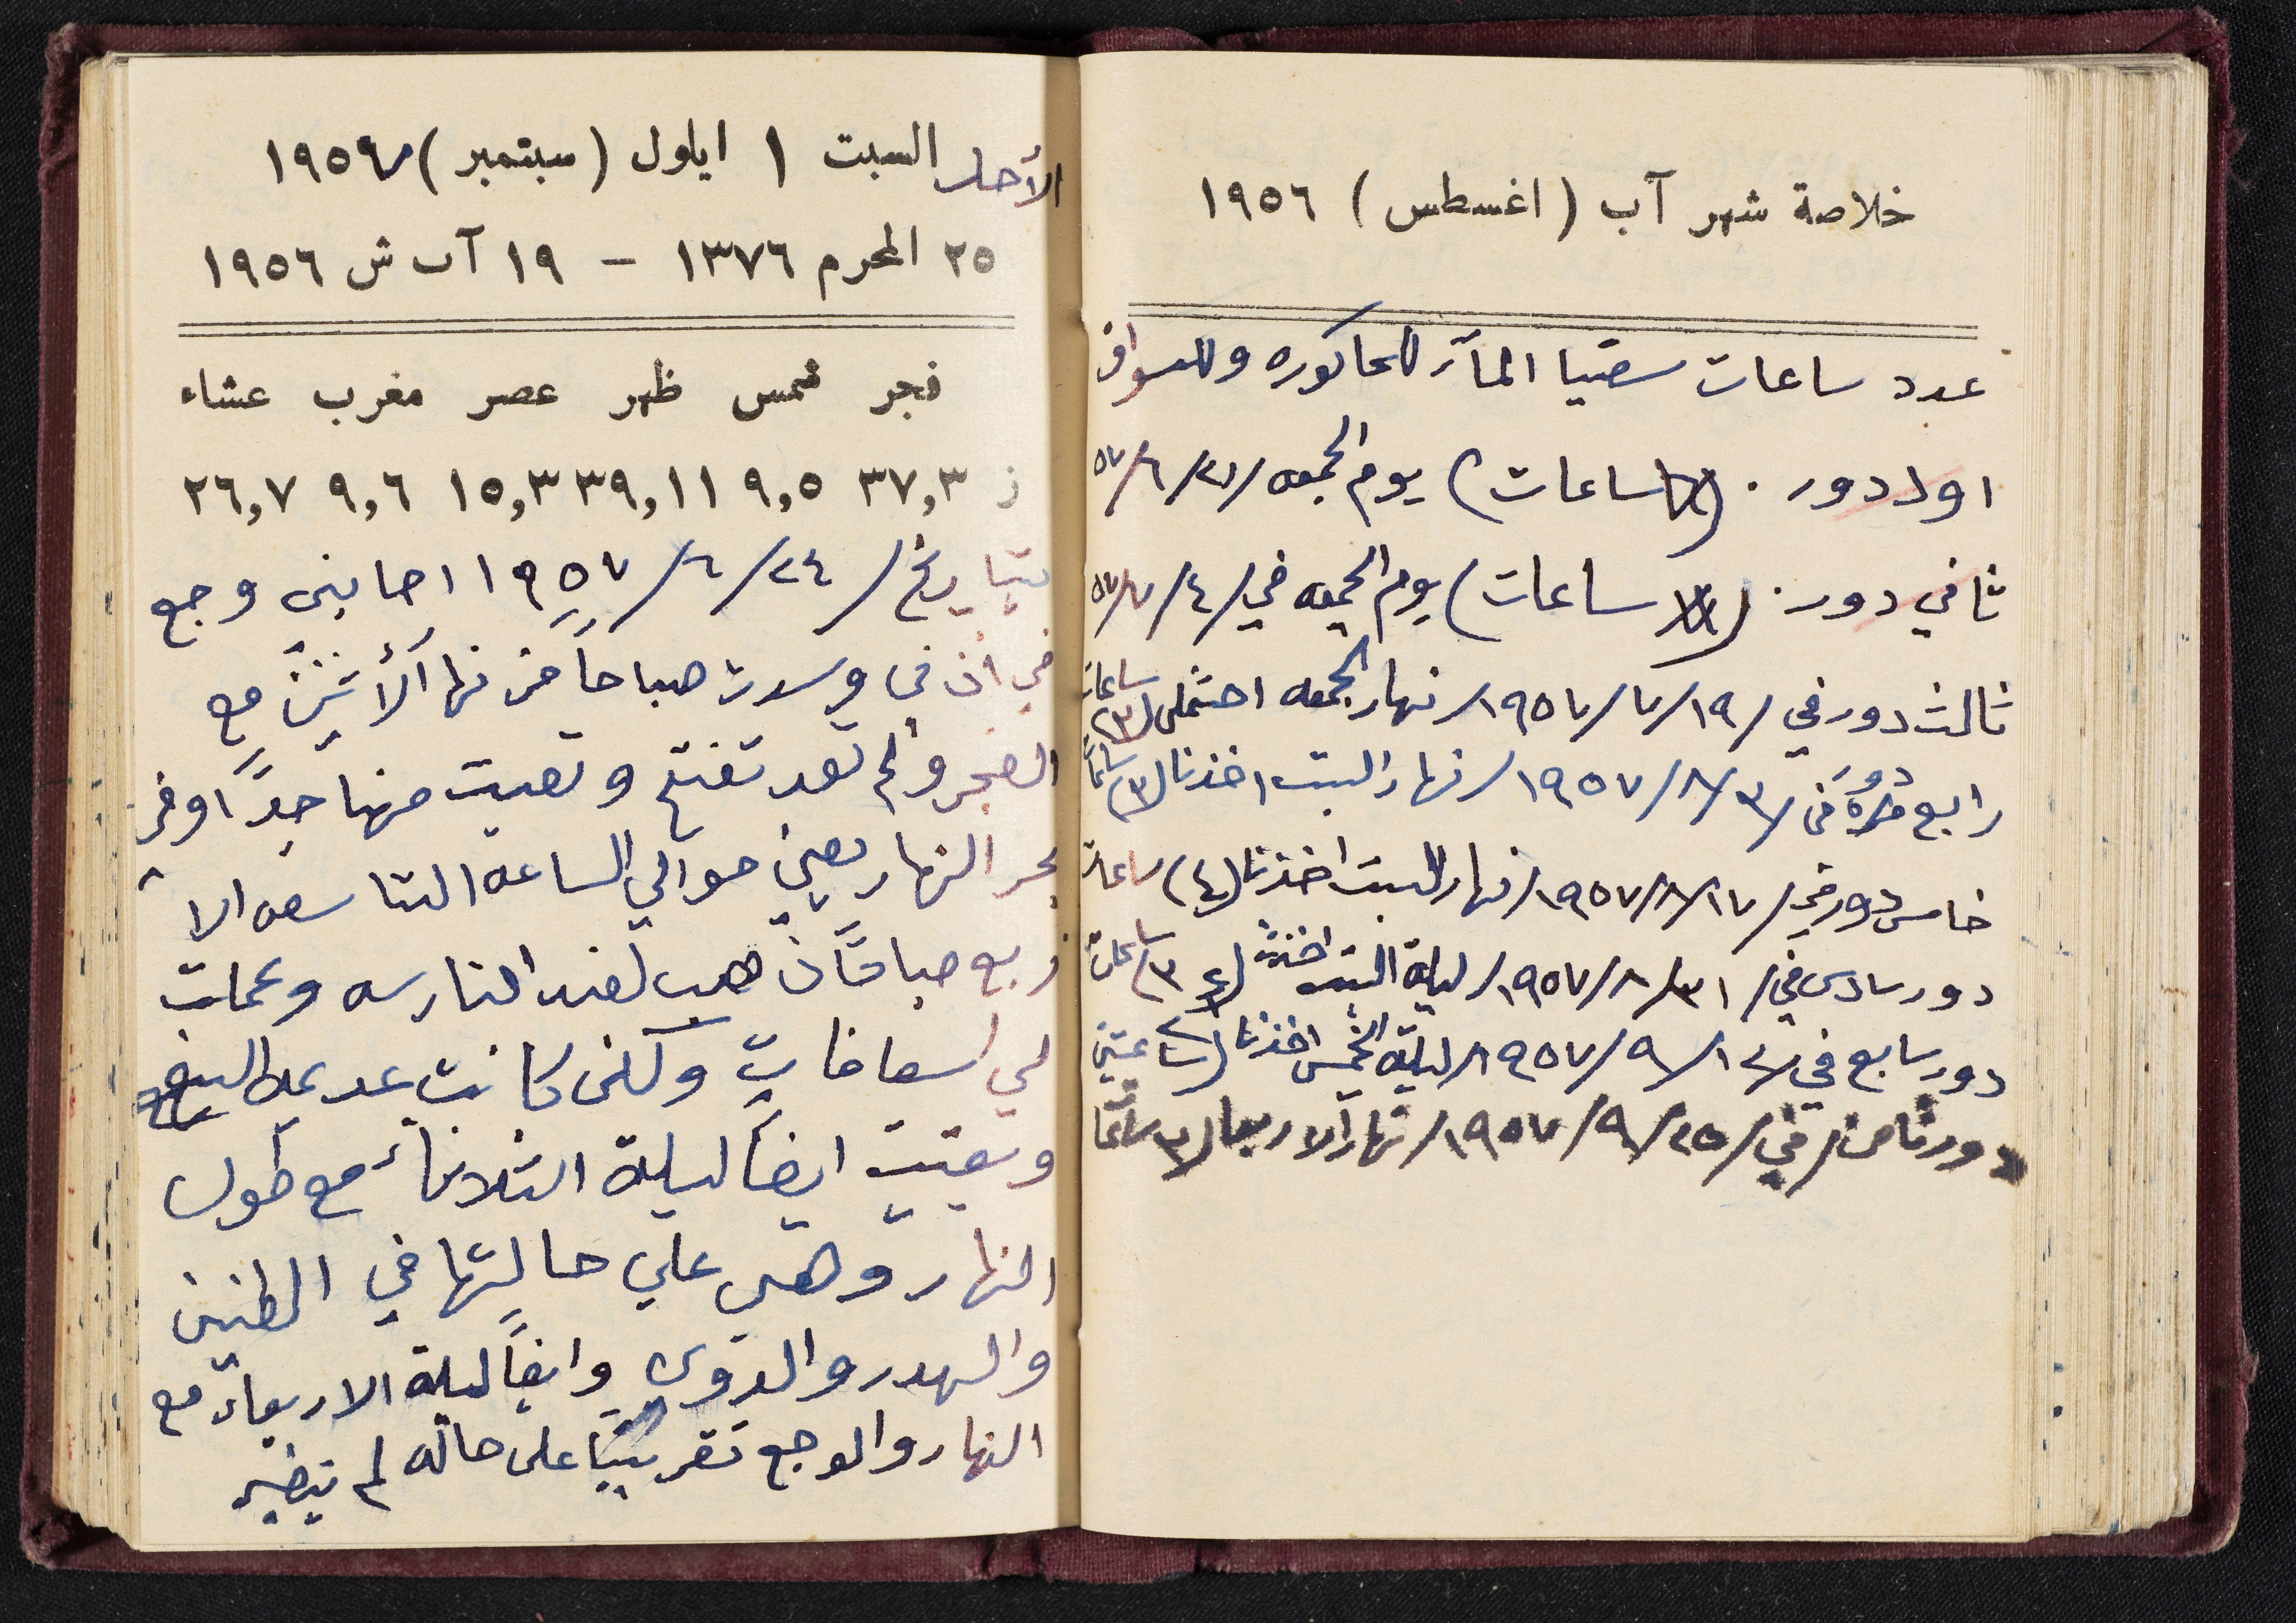 خلاصة شهر آب (اغسطس) ١٩٥٦
عدد ساعات سقيا المآء للحاكوره وللسواق
اولا دور. ( ساعات) يوم الجمعه /٢١/٦/٥٧
ثاني دور. ( ساعات) يوم الجمعه في /٤/٧/٥٧
ثالث دور في /١٩/٧/١٩٥٧/ نهار الجمعه (٣) ساعات
رابع دور في /٣/٨/١٩٥٧/ نهار السبت اخذنا (٣)
خامس دور في /١٧/٨/١٩٥٧/ نهار السبت اخذنا (٤) ساعات
دور سادس في /٣١/٨/١٩٥٧/ ليلة السبت اخذت ٣ ساعات
دور سابع في /١٢/٩/١٩٥٧/ ليلة الخميس اخذنا ساعتين
دور ثامن في /٢٥/٩/١٩٥٧/ نهار الاربعا ٣
الأحد السبت ١ ايلول (سبتمبر) ١٩٥٦
٢٥ المحرم ١٣٧٦ – ١٩ آب ش ١٩٥٦
فجر شمس ظهر عصر مغرب عشاء
ز ٣٧,٣ ٩,٥ ٣٩,١١ ١٥,٣ ٩,٦ ٢٦,٧
بتاريخ /٢٤/٦/١٩٥٧ اصابني وجع
في اذني وسدت صباحاً من نهار الأثنين مع
الفجر ولم تعد تفتح وتعبت منها جداً وفي
بحر النهار يعني حوالي الساعه التاسعه الا
ربع صباحاً ذهبت لعند وعملت
لي اسعافات ولكن كانت عديمة النفع
وبقيت ايضاً ليلة الثلاثاء مع طول
النهار وهي على حالتها في الطنين
والهدر والدوي وايضاً ليلة الاربعاء مع
النهار والوجع تقريباً على حاله لم يتغير